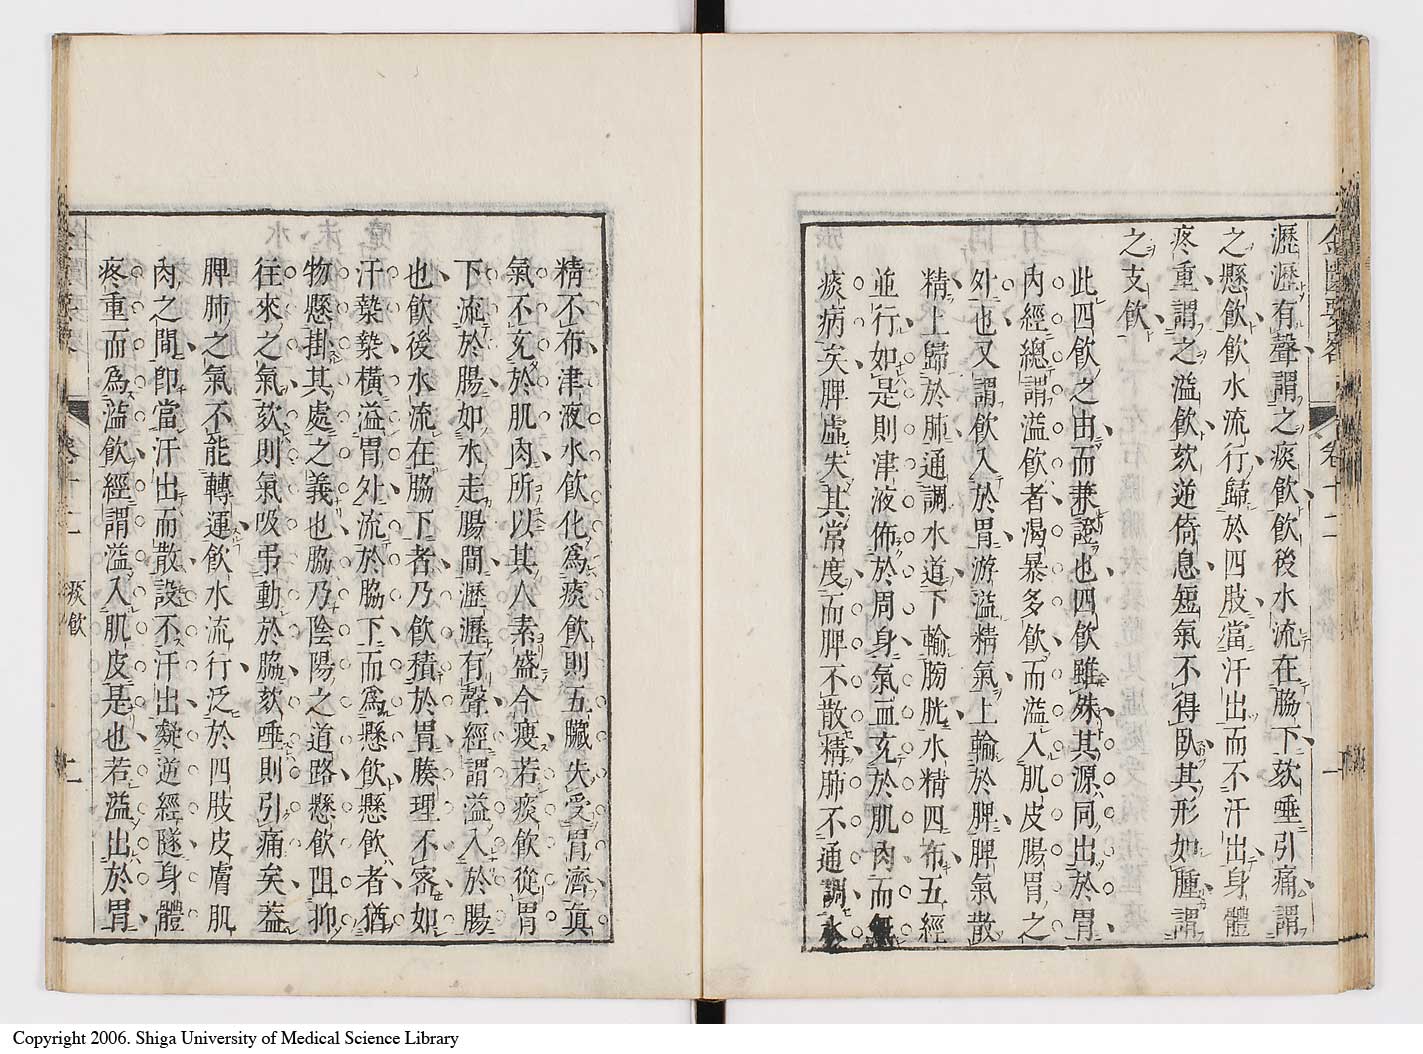 瀝瀝有聲謂之痰飲飲後水流在脇下欬唾引痛謂
之懸飲飲水流行歸於四肢當汗出而不汗出身體
疼重謂之溢飲欬逆倚息短氣不得臥其形如腫謂
之支飲
此四飲之由而兼證也四飲雖殊其源同出於胃
內經總謂溢飲者渴暴多飲而溢入肌皮腸胃之
外也又謂飲入於胃游溢精氣上輸於脾脾氣散
精上歸於肺通調水道下輸膀胱水精四布五經
並行如是則津液佈於周身氣血充於肌肉而無
痰病矣脾虛失其常度而脾不散精肺不通調水
精不布津液水飲化為痰飲則五臟失受胃濟真
氣不充於肌肉所以其人素盛今瘦若痰飲從胃
下流於腸如水走腸間瀝瀝有聲經謂溢入於腸
也飲後水流在脇下者乃飲積於胃腠理不密如
汗漐漐橫溢胃外流於脇下而為懸飲懸飲者猶
物懸掛其處之義也脇乃陰陽之道路懸飲阻抑
往來之氣欬則氣吸弔動於脇欬唾則引痛矣蓋
脾肺之氣不能轉運飲水流行泛於四肢皮膚肌
肉之間即當汗出而散設不汗出凝逆經隧身體
疼重而為溢飲經謂溢入肌皮是也若溢出於胃
卷十二 痰飲 二
Copyright 2006. Shiga University of Medical Science Library